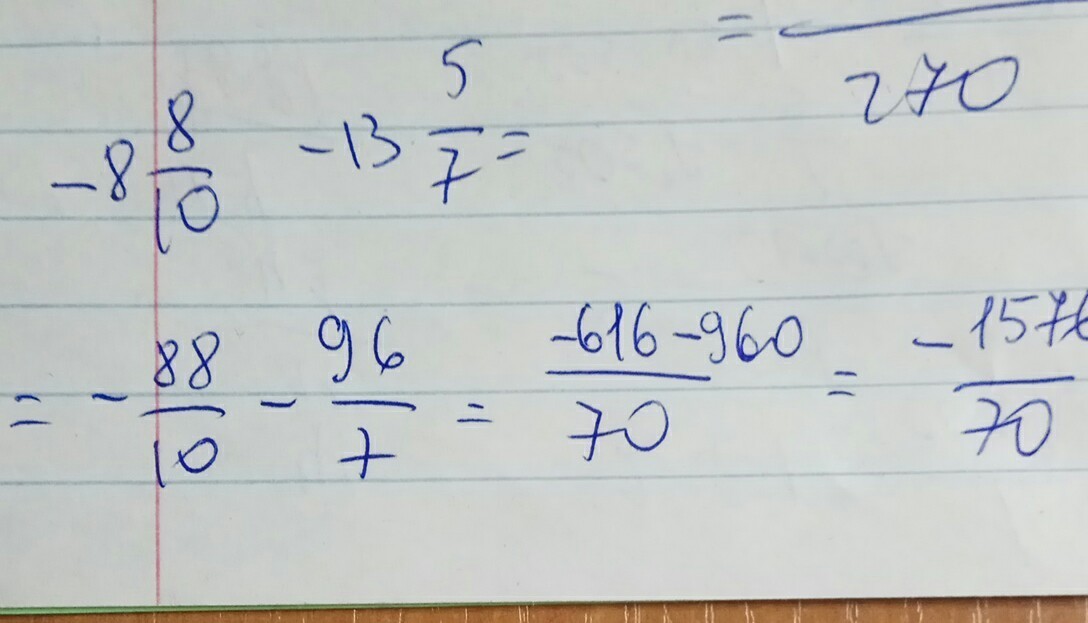 = /270
-8 8/10 -13 5/7 =
= - 88/10 - 96/7 = -616-960/70 = -1576/70